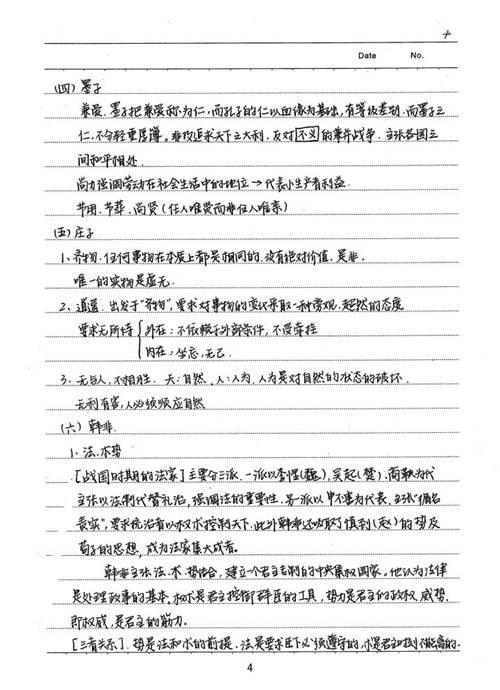 Date No.
(四) 墨子
兼爱. 墨子把兼爱称为仁, 而孔子的仁以血缘为基础, 有等级差别. 而墨子之
仁, 不分轻重厚薄. 非攻追求天下之大利, 反对不义的兼并战争. 主张各国之
间和平相处.
尚力强调劳动在社会生活中的地位→代表小生产者利益.
节用. 节葬. 尚贤 (任人唯贤而非任人唯亲)
(五) 庄子
1、齐物. 任何事物在本质上都是相同的. 没有绝对价值、是非.
唯一的实物是虚无.
2、逍遥. 出发于"齐物", 要求对事物的变化采取一种旁观, 超然的态度
要求无所恃 外在: 不依赖于外部条件, 不受牵挂
内在: 坐忘, 无己.
3. 天与人, 不相胜. 天: 自然. 人: 人为. 人为是对自然的状态的破坏.
无利有害, 人必须顺应自然
(六) 韩非
1. 法. 术. 势
[战国时期的法家] 主要分三派. 一派以李悝(魏). 吴起(楚). 商鞅为代
主张以法制代替礼治, 强调法的重要性. 另一派以申不害为代表, 主张"循名
责实", 要求统治者以权术控制天下. 此外韩非还吸取了慎到(赵)的势及
荀子的思想, 成为法家集大成者.
韩非主张法. 术. 势结合, 建立一个君主专制的中央集权国家. 他认为法律
是处理政事的基本, 权术是君主控御群臣的工具, 势力是君主的政权, 威势.
即权威, 是君主的筋力.
[三者关系]. 势是法和术的前提. 法是要求臣下必须遵守的, 术是君主
4